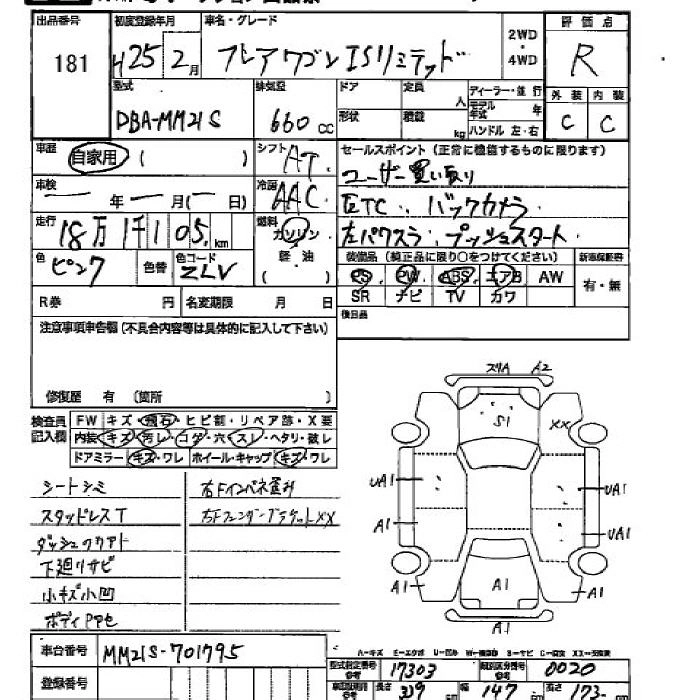 出品番号 初度登録年月 車名・グレード 2WD・4WD 評価点
181 H25 2月 フレアワゴン ISリミテッド R
型式 排気量 ドア 定員 人 ディーラー・並行 外装 内装
DBA-MM21S 660cc 形状 積載 kg モデル年式 年 ハンドル 左・右 C C
車歴 自家用 ( ) シフト AT セールスポイント(正常に機能するものに限ります)
ユーザー買い取り
車検 ー年ー月(ー日) 冷房 AAC ETC. バックカメラ.
走行 18万1千105.km 燃料 ガソリン 軽油 ( ) 左パワスラ. プッシュスタート.
色 ピンク 色替 色コード ZLV 装備品(純正品に限り○をつけてください) 新車保証書
PS PW ABS エアB AW 有・無
R券 円 名変期限 月 日 SR ナビ TV カワ
注意事項申告欄(不具合内容等は具体的に記入して下さい) 後日品
修復歴 有 (箇所 )
検査員記入欄 FW キズ・飛石・ヒビ割・リペア跡・X要
内装 キズ・汚レ・コゲ・穴・スレ・ヘタリ・破レ
ドアミラー キズ・ワレ ホイール・キャップ キズ・ワレ
シートシミ 右Fインパネ歪み
スタッドレスT 右Fフェンダーブラケットxx
ダッシュクカアト
下廻りサビ
小キズ小凹
ボディPPセ
スリA A2
S1 XX
UA1 UA1
A1 UA1
A1 A1 A1
A1
車台番号 MM21S-701795
A-キズ E-エクボ U-凹ミ W-補修跡 S-サビ C-腐食 XX-交換済
型式指定番号 17303 類別区分番号 0020
登録番号 長さ 339 cm 幅 147 cm 高さ 173- cm